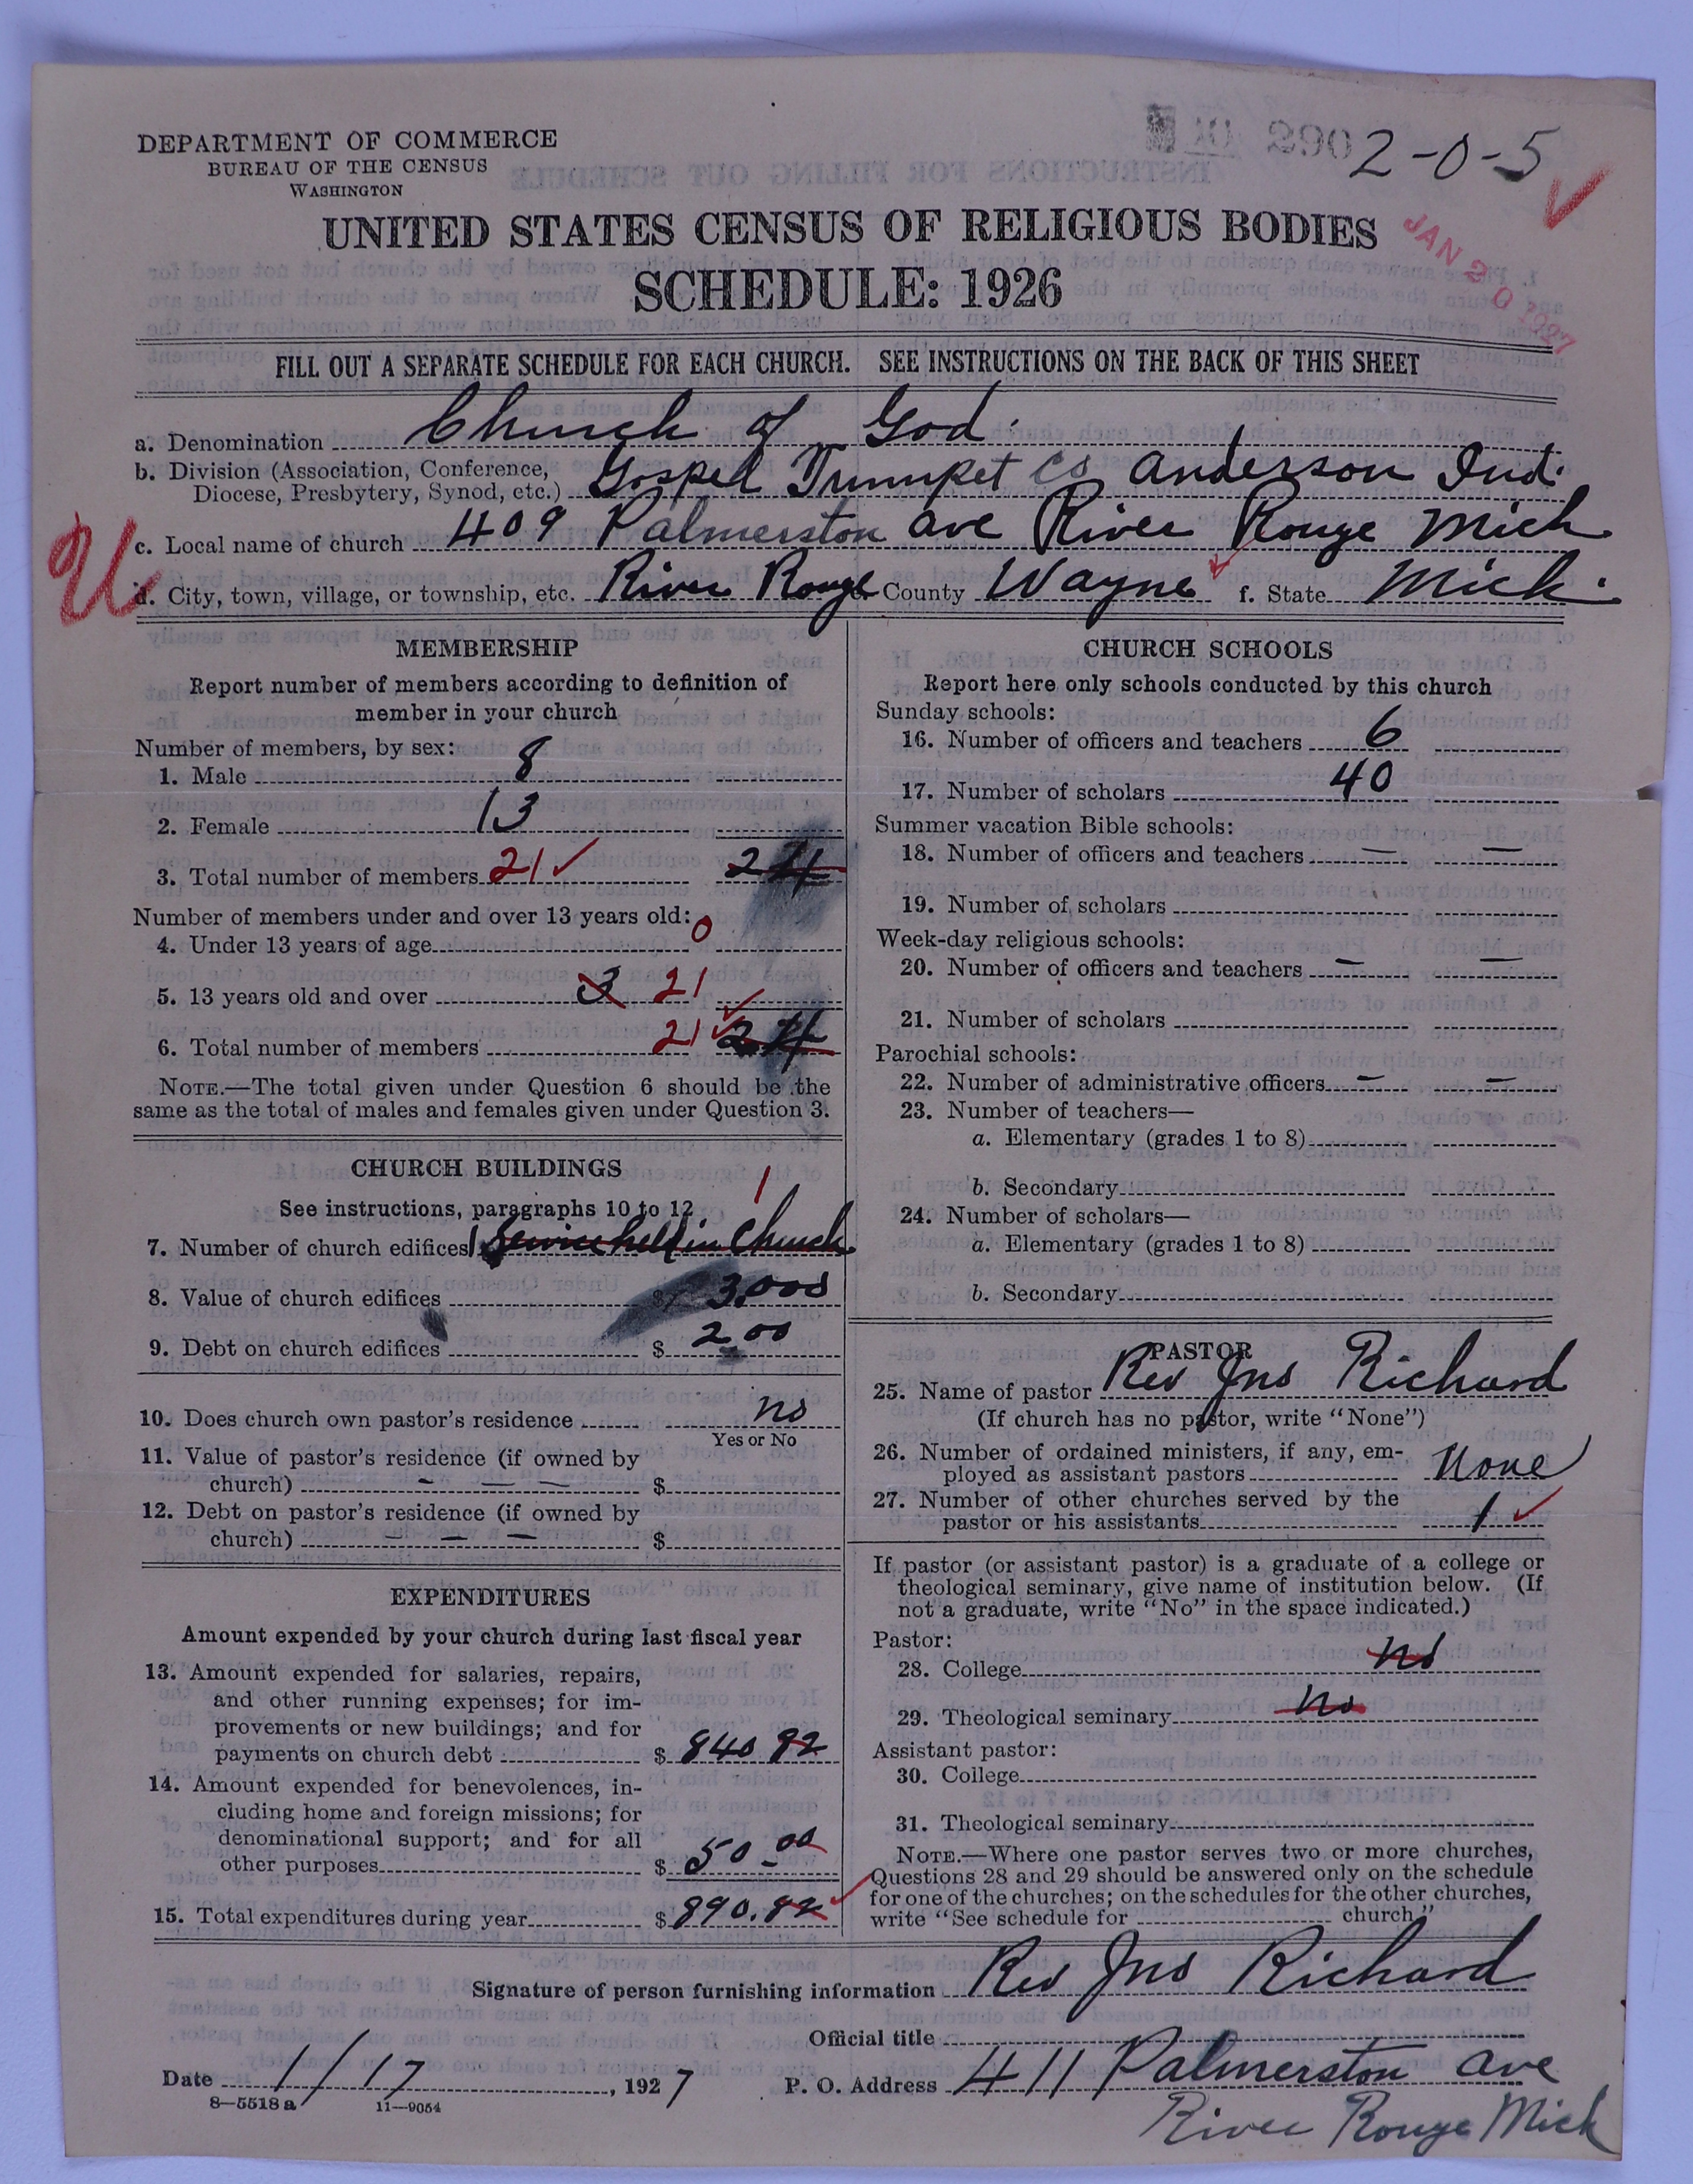 DEPARTMENT OF COMMERCE
BUREAU OF THE CENSUS
WASHINGTON
290 2-0-5
UNITED STATES CENSUS OF RELIGIOUS BODIES
SCHEDULE: 1926
JAN 20 1927
FILL OUT A SEPARATE SCHEDULE FOR EACH CHURCH. SEE INSTRUCTIONS ON THE BACK OF THIS SHEET
a. Denomination Church of God.
b. Division (Association, Conference,
Diocese, Presbytery, Synod, etc.) Gospel Trumpet Co Anderson Ind.
c. Local name of church 409 Palmerston ave River Rouge Mich
U
d. City, town, village, or township, etc. River Rouge County Wayne f. State Mich.
MEMBERSHIP
Report number of members according to definition of
member in your church
Number of members, by sex:
1. Male 8
2. Female 13
3. Total number of members 21 ✓ 24
Number of members under and over 13 years old:
4. Under 13 years of age 0
5. 13 years old and over 3 21
6. Total number of members 21 ✓ 24
NOTE.—The total given under Question 6 should be the
same as the total of males and females given under Question 3.
CHURCH BUILDINGS
See instructions, paragraphs 10 to 12
1
7. Number of church edifices 1 Service held in Church
8. Value of church edifices $ 3,000
9. Debt on church edifices $ 200
10. Does church own pastor's residence no
Yes or No
11. Value of pastor's residence (if owned by
church) - — — $
12. Debt on pastor's residence (if owned by
church) — — — $
EXPENDITURES
Amount expended by your church during last fiscal year
13. Amount expended for salaries, repairs,
and other running expenses; for im-
provements or new buildings; and for
payments on church debt $ 840 82
14. Amount expended for benevolences, in-
cluding home and foreign missions; for
denominational support; and for all
other purposes $ 50-00
15. Total expenditures during year $ 890.82
CHURCH SCHOOLS
Report here only schools conducted by this church
Sunday schools:
16. Number of officers and teachers 6
17. Number of scholars 40
Summer vacation Bible schools:
18. Number of officers and teachers — —
19. Number of scholars
Week-day religious schools:
20. Number of officers and teachers — —
21. Number of scholars
Parochial schools:
22. Number of administrative officers — —
23. Number of teachers—
a. Elementary (grades 1 to 8)
b. Secondary
24. Number of scholars—
a. Elementary (grades 1 to 8)
b. Secondary
PASTOR
25. Name of pastor Rev Jno Richard
(If church has no pastor, write "None")
26. Number of ordained ministers, if any, em-
ployed as assistant pastors None
27. Number of other churches served by the
pastor or his assistants 1 ✓
If pastor (or assistant pastor) is a graduate of a college or
theological seminary, give name of institution below. (If
not a graduate, write "No" in the space indicated.)
Pastor:
28. College no
29. Theological seminary no
Assistant pastor:
30. College
31. Theological seminary
NOTE.—Where one pastor serves two or more churches,
Questions 28 and 29 should be answered only on the schedule
for one of the churches; on the schedules for the other churches,
write "See schedule for church."
Signature of person furnishing information Rev Jno Richard
Official title
Date 1/17, 1927 P. O. Address 411 Palmerston ave
River Rouge Mich
8—5518 a 11—9054